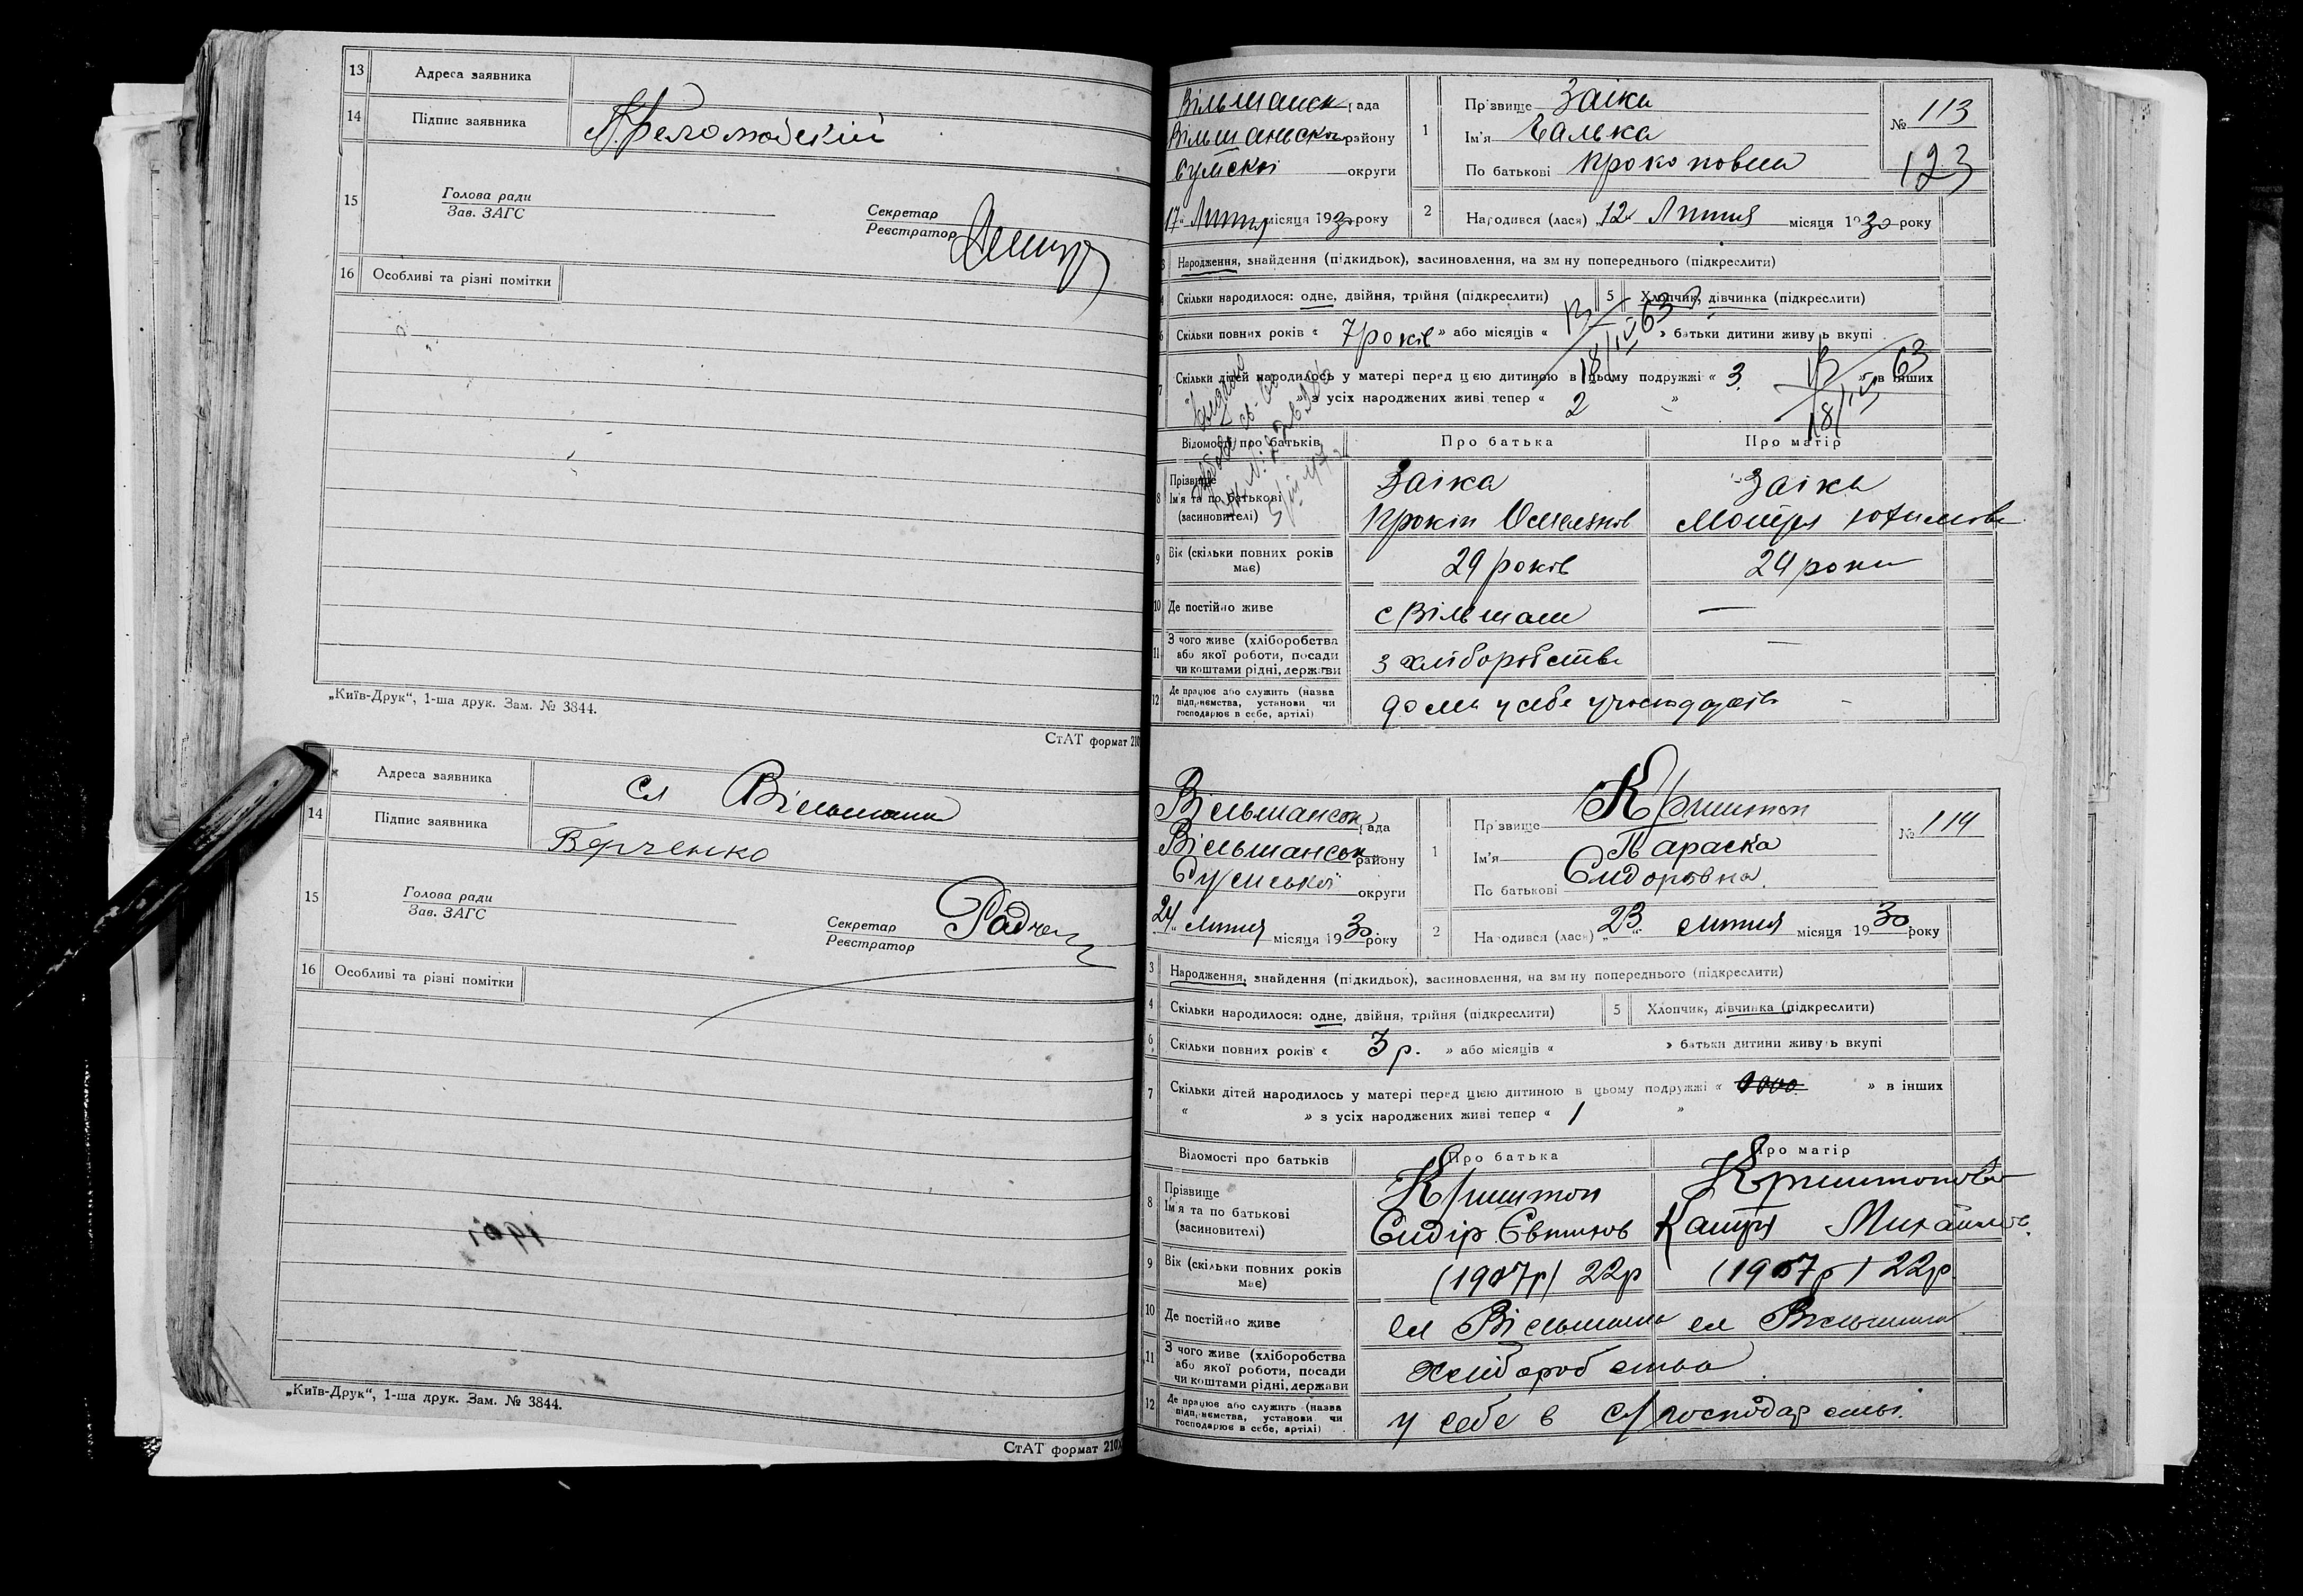 13 Адреса заявника
14 Підпис заявника
15 Голова ради
Зав. ЗАГС
Секретар
Реєстратор
16 Особливі та різні помітки
„Київ-Друк“, 1-ша друк. Зам. № 3844.
СтАТ формат 210
Адреса заявника сл Вільшана
14 Підпис заявника
15 Голова ради
Зав. ЗАГС
Секретар
Реєстратор
16 Особливі та різні помітки
„Київ-Друк“, 1-ша друк. Зам. № 3844.
СтАТ формат 210
Вільшанск рада
району
Сумскої округи
17 Липня місяця 1930 року
1 Прізвище Заіка
Ім'я Галька
По батькові Прокоповна
№ 113
123
2 Народився (лася) 12 Липня місяця 1930 року
3 Народження, знайдення (підкидьок), засиновлення, на зміну попереднього (підкреслити)
4 Скільки народилося: одне, двійня, трійня (підкреслити) 5 Хлопчик, дівчинка (підкреслити)
6 Скільки повних років « 7 років » або місяців « » батьки дитини живуть вкупі
7 Скільки дітей народилось у матері перед цією дитиною в цьому подружжі « 3 » в інших
» з усіх народжених живі тепер « 2 »
63
18/IV
63
18/IV
Відомості про батьків Про батька Про матір
8 Прізвище
Ім'я та по батькові
(засиновителі)
Заіка
Прокіп Омелянов
Заіка
Мотря Юхимовна
9 Вік (скільки повних років має) 29 років 24 роки
10 Де постійно живе с Вільшани —
11 З чого живе (хліборобства
або якої роботи, посади
чи коштами рідні, держави
з хліборобства —
12 Де працює або служить (назва
підприємства, установи чи
господарює в себе, артілі)
дома у себе
Вільшанськ рада
Вільшанськ району
Сумської округи
24 липня місяця 1930 року
1 Прізвище Криштоп
Ім'я Параска
По батькові Сидоровна
№ 114
2 Народився (лася) „23“ липня місяця 1930 року
3 Народження, знайдення (підкидьок), засиновлення, на зміну попереднього (підкреслити)
4 Скільки народилося: одне, двійня, трійня (підкреслити) 5 Хлопчик, дівчинка (підкреслити)
6 Скільки повних років « 3 р. » або місяців « » батьки дитини живуть вкупі
7 Скільки дітей народилось у матері перед цією дитиною в цьому подружжі « » в інших
« » з усіх народжених живі тепер « 1 »
Відомості про батьків Про батька Про матір
8 Прізвище
Ім'я та по батькові
(засиновителі)
Криштоп
Сидір Євтихов
Криштопова
Катря Михайлов.
9 Вік (скільки повних років має) (1907р) 22р (1907р) 22р.
10 Де постійно живе сл Вільшана сл Вільшана
11 З чого живе (хліборобства
або якої роботи, посади
чи коштами рідні, держави
хліборобства
12 Де працює або служить (назва
підприємства, установи чи
господарює в себе, артілі)
у себе в с/господарстві.